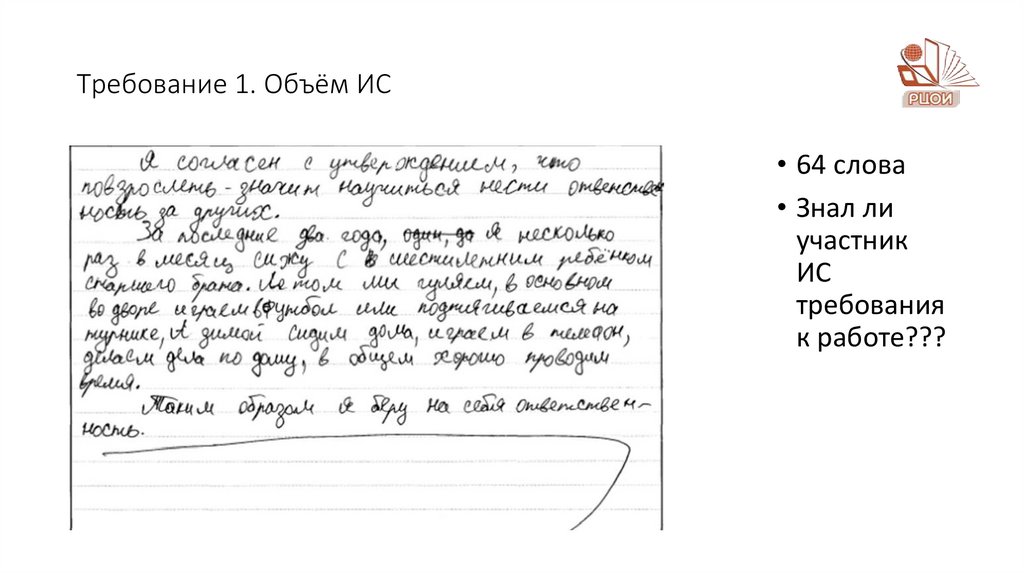 Требование 1. Объём ИС
РЦОИ
Я согласен с утверждением, что
повзрослеть - значит научиться нести ответстве
ность за других.
За последние два года, один, да я несколько
раз в месяц сижу с в шестилетним ребёнком
старшего брата. Летом ми гуляем, в основном
во дворе играем в футбол или подтягиваемся на
турнике, А зимой сидим дома, играем в телефон,
делаем дела по дому, в общем хорошо проводим
время.
Таким образом я беру на себя ответствен-
ность.
• 64 слова
• Знал ли
участник
ИС
требования
к работе???